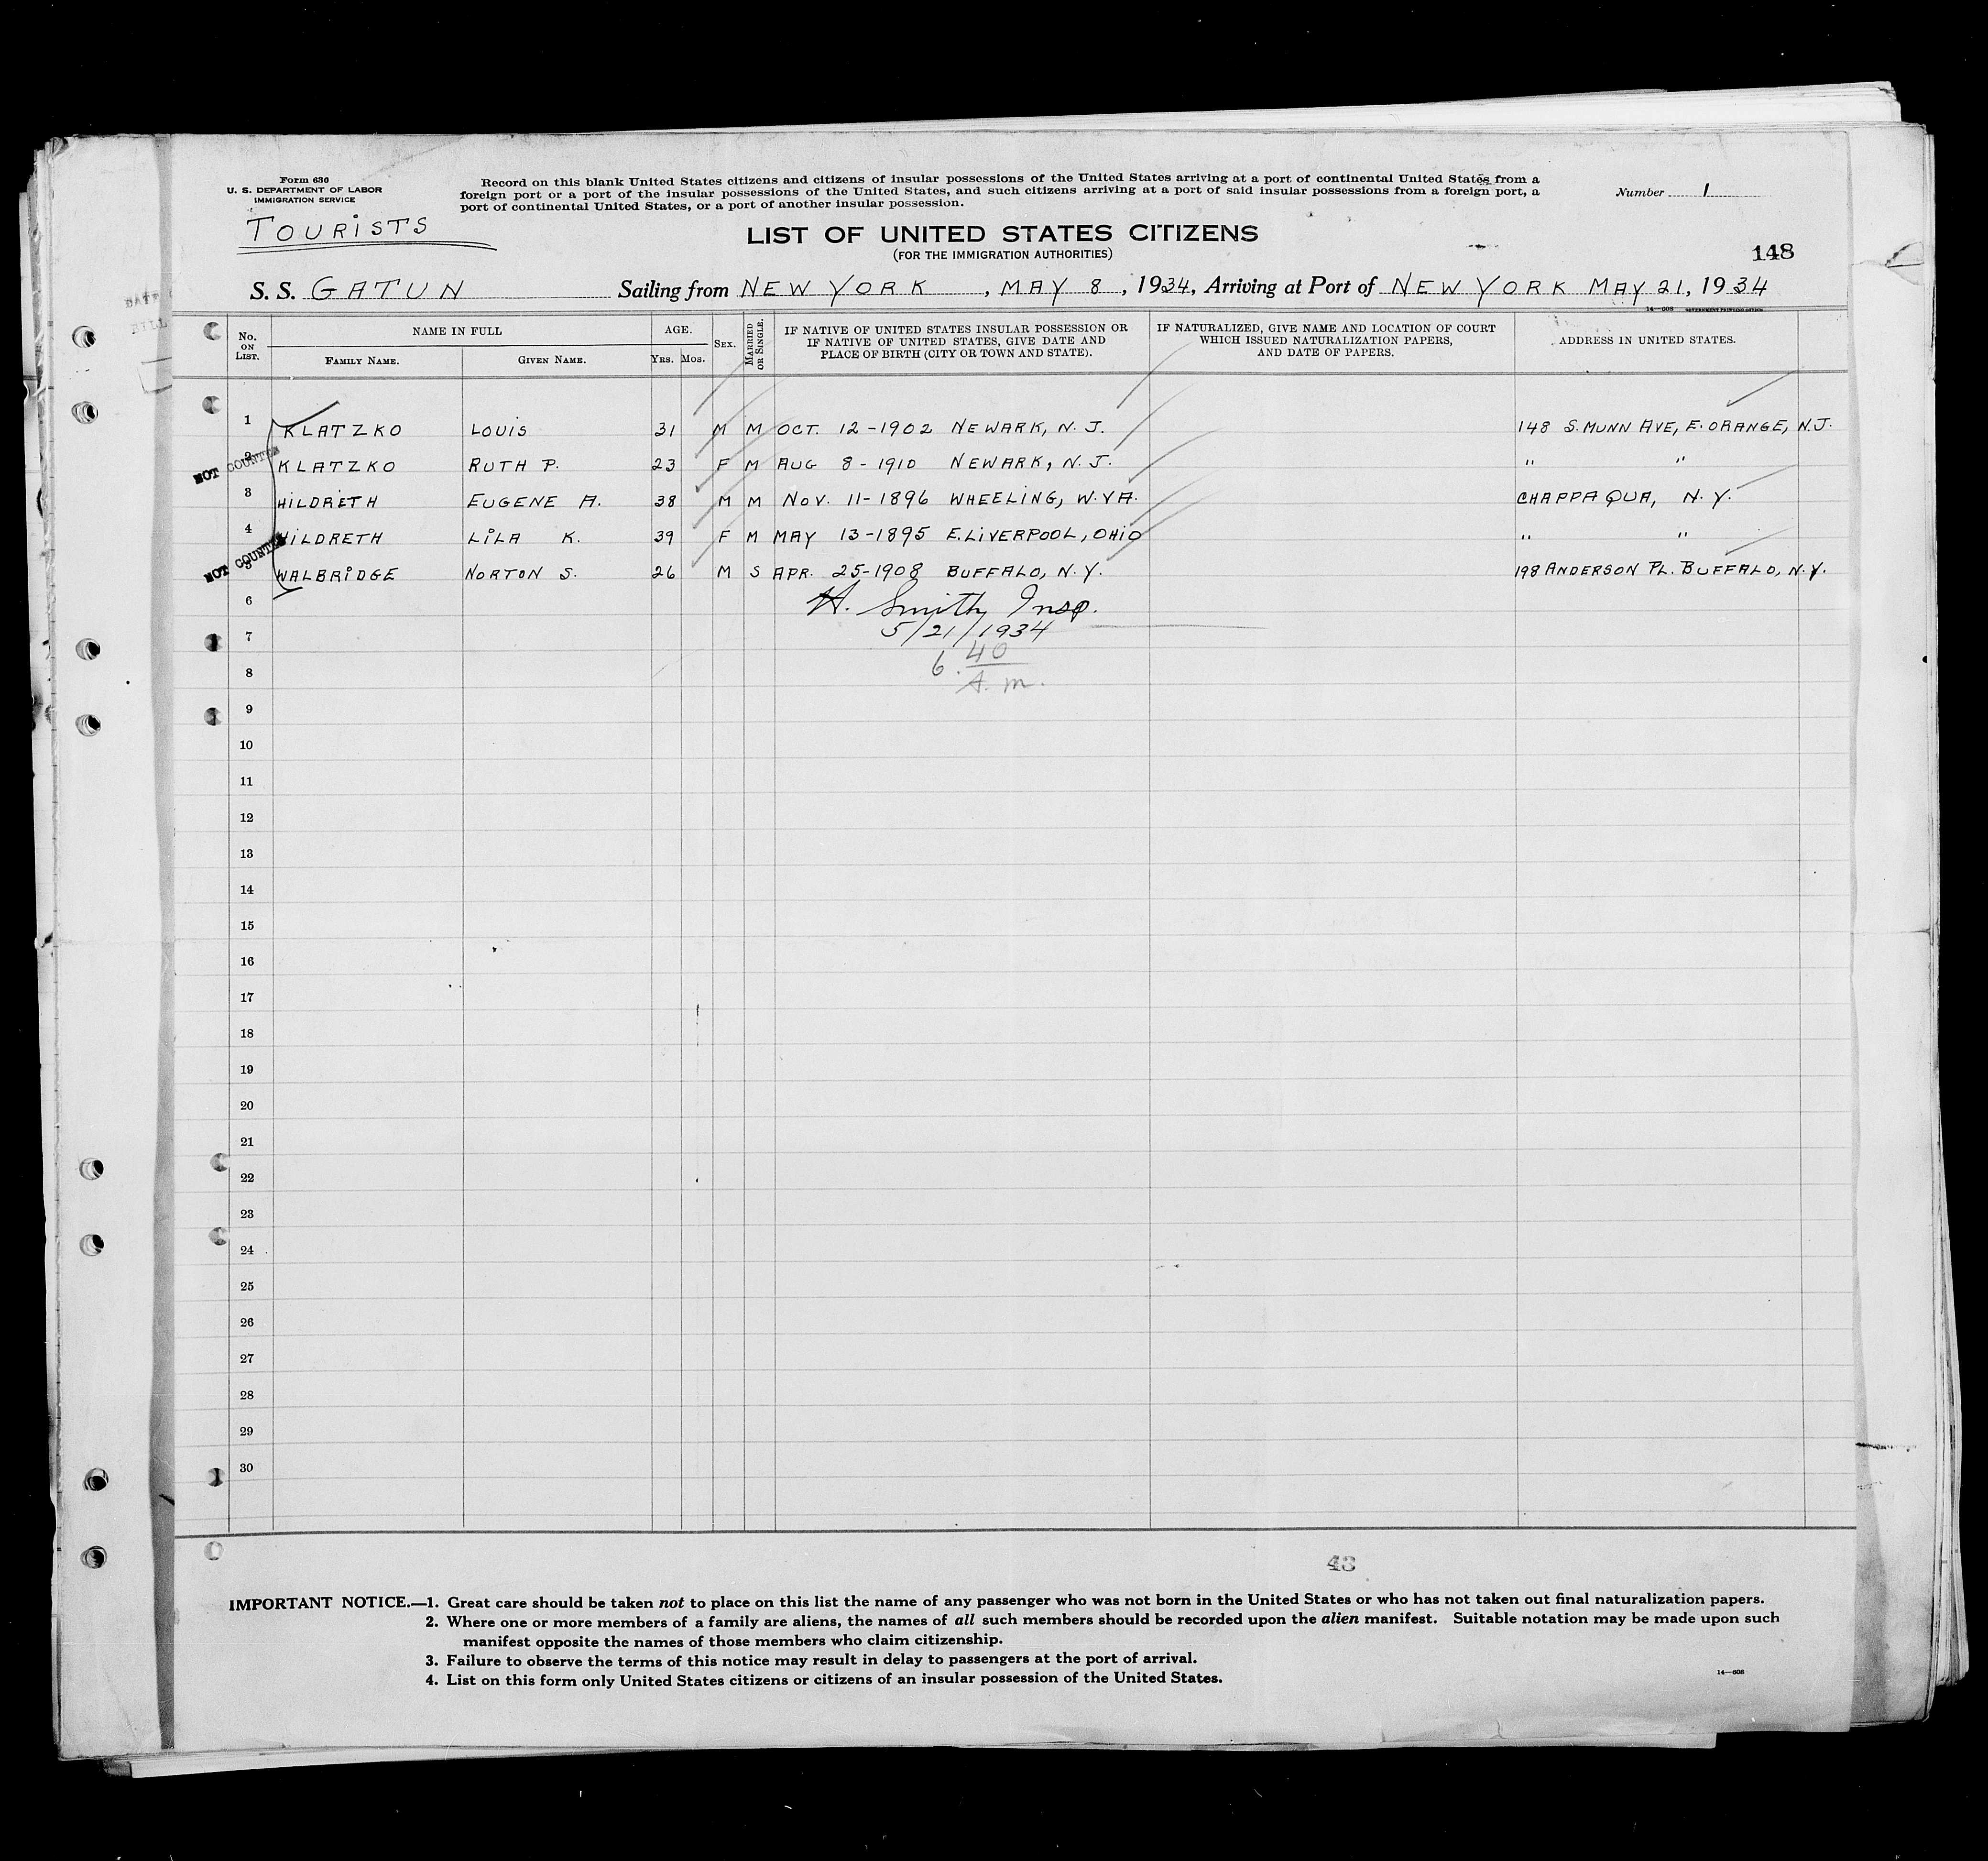 Form 636
U. S. DEPARTMENT OF LABOR
IMMIGRATION SERVICE
TOURISTS
Record on this blank United States citizens and citizens of insular possessions of the United States arriving at a port of continental United States from a
foreign port or a port of the insular possessions of the United States, and such citizens arriving at a port of said insular possessions from a foreign port, a
port of continental United States, or a port of another insular possession.
Number 1
LIST OF UNITED STATES CITIZENS
(FOR THE IMMIGRATION AUTHORITIES)
148
S. S. GATUN Sailing from NEW YORK, MAY 8, 1934, Arriving at Port of NEW YORK MAY 21, 1934
No. ON LIST.
NAME IN FULL
FAMILY NAME. GIVEN NAME.
AGE.
YRS. MOS.
SEX.
MARRIED OR SINGLE.
IF NATIVE OF UNITED STATES INSULAR POSSESSION OR
IF NATIVE OF UNITED STATES, GIVE DATE AND
PLACE OF BIRTH (CITY OR TOWN AND STATE).
IF NATURALIZED, GIVE NAME AND LOCATION OF COURT
WHICH ISSUED NATURALIZATION PAPERS,
AND DATE OF PAPERS.
14—608 GOVERNMENT PRINTING OFFICE
ADDRESS IN UNITED STATES.
1 KLATZKO LOUIS 31 M M OCT. 12-1902 NEWARK, N. J. 148 S. MUNN AVE, E. ORANGE, N.J.
NOT COUNTED
2 KLATZKO RUTH P. 23 F M AUG 8-1910 NEWARK, N. J. " "
3 HILDRETH EUGENE A. 38 M M NOV. 11-1896 WHEELING, W. VA. CHAPPAQUA, N. Y.
4 HILDRETH LILA K. 39 F M MAY 13-1895 E. LIVERPOOL, OHIO " "
NOT COUNTED
5 WALBRIDGE NORTON S. 26 M S APR. 25-1908 BUFFALO, N. Y. 198 ANDERSON PL. BUFFALO, N. Y.
6 H. Smith Insp.
7 5/21/1934
8 6.40 A. m.
9
10
11
12
13
14
15
16
17
18
19
20
21
22
23
24
25
26
27
28
29
30
43
IMPORTANT NOTICE.—1. Great care should be taken not to place on this list the name of any passenger who was not born in the United States or who has not taken out final naturalization papers.
2. Where one or more members of a family are aliens, the names of all such members should be recorded upon the alien manifest. Suitable notation may be made upon such
manifest opposite the names of those members who claim citizenship.
3. Failure to observe the terms of this notice may result in delay to passengers at the port of arrival.
4. List on this form only United States citizens or citizens of an insular possession of the United States.
14—608